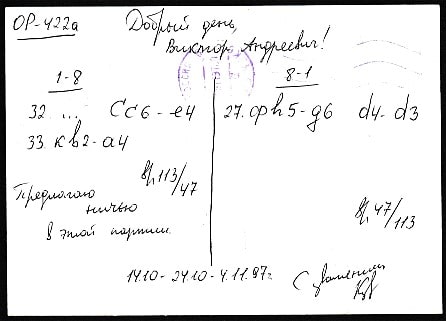 ОР-422а
Добрый день,
Виктор Андреевич!
1-8
32. ... Сc6-e4
33. Кb2-a4
Вр. 113/47
Предлагаю
ничью
в этой партии.
8-1
27. Фh5-g6 d4-d3
Вр. 47/113
14.10-24.10-4.11.97г.
С уважением